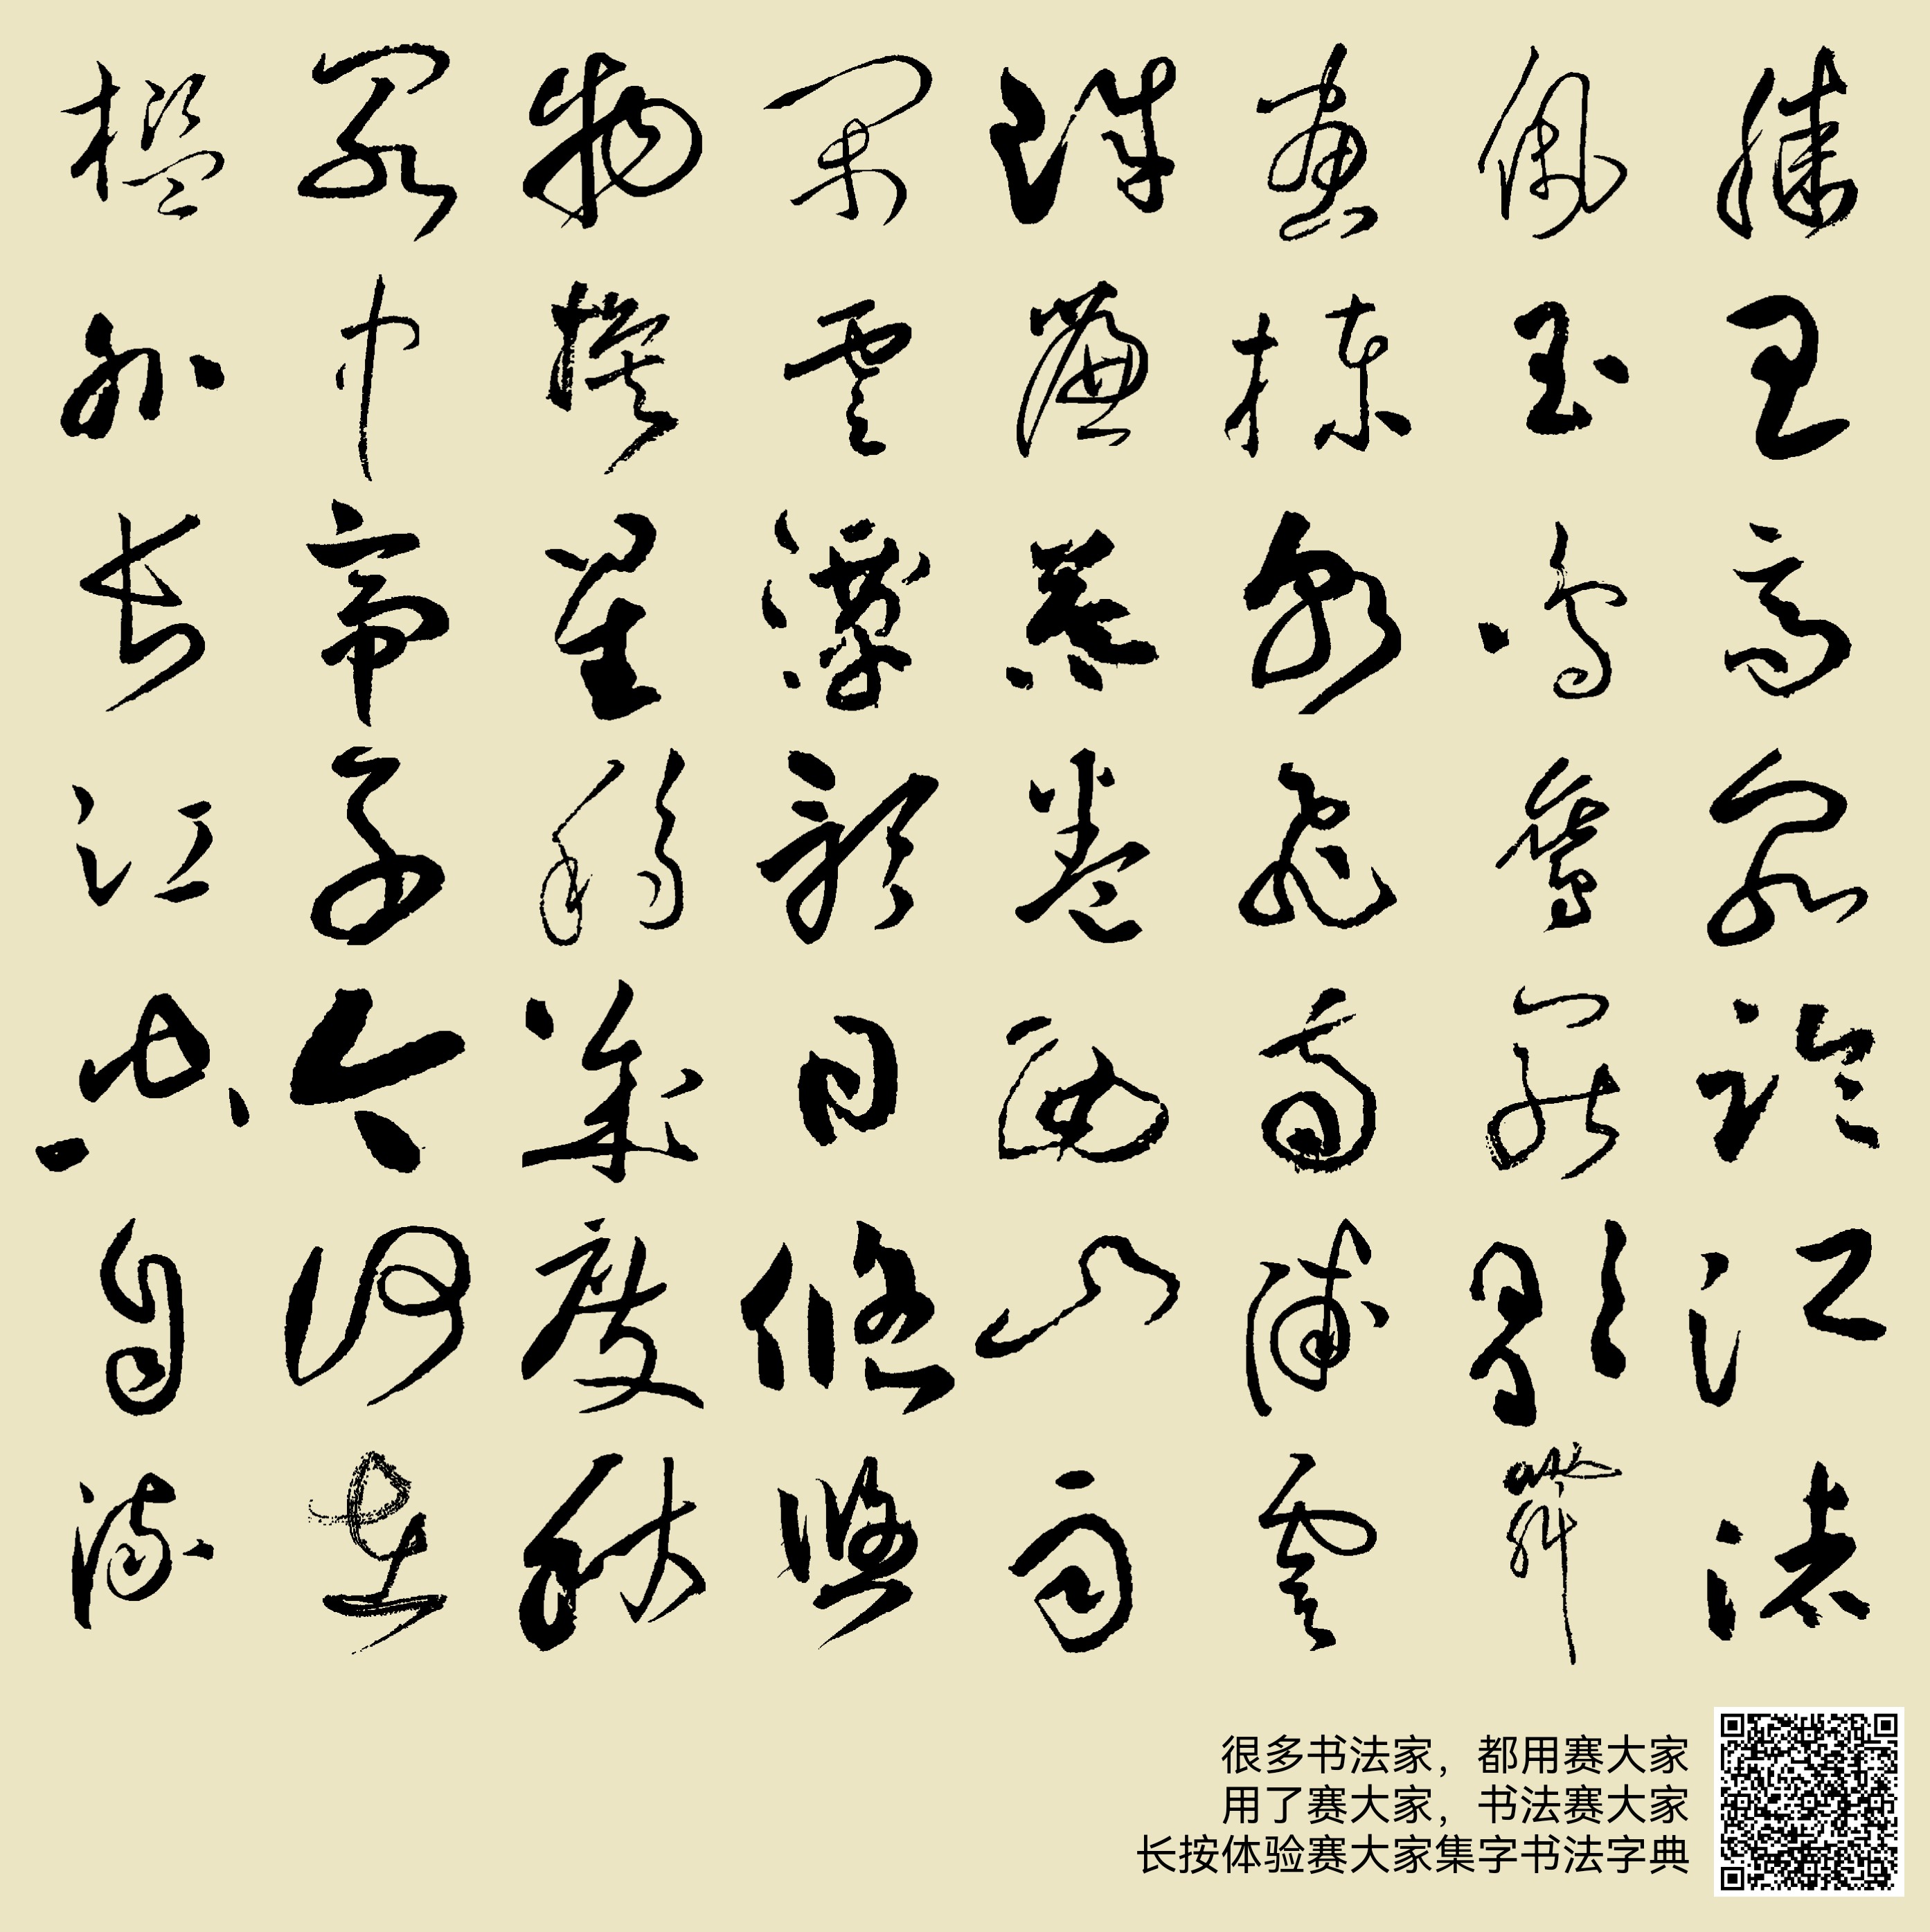 滕王高閣臨江渚
佩玉鳴鸞罷歌舞
畫棟朝飛南浦雲
珠簾暮卷西山雨
閑雲潭影日悠悠
物換星移幾度秋
閣中帝子今何在
檻外長江空自流
很多书法家，都用赛大家
用了赛大家，书法赛大家
长按体验赛大家集字书法字典